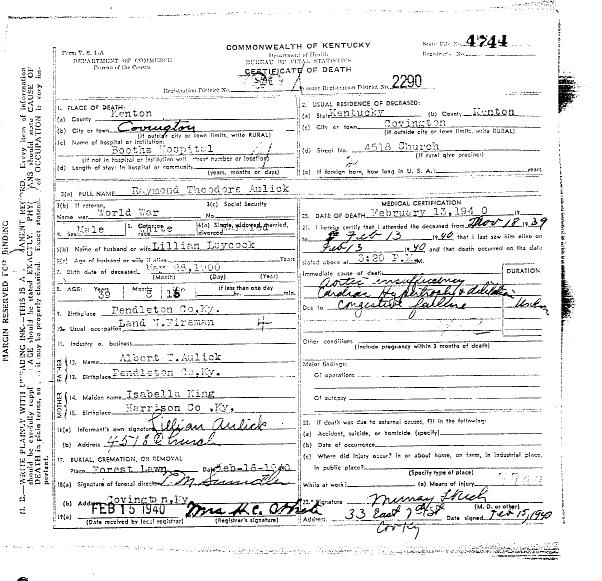 Form V. S. 1-A
DEPARTMENT OF COMMERCE
Bureau of the Census
COMMONWEALTH OF KENTUCKY
Department of Health
BUREAU OF VITAL STATISTICS
CERTIFICATE OF DEATH
State File No. 4744
Registrar's No.
Registration District No.
Primary Registration District No. 2290
1. PLACE OF DEATH:
(a) County Kenton
(b) City or town Covington
(If outside city or town limits, write RURAL)
(c) Name of hospital or institution:
Booths Hospital
(If not in hospital or institution write street number or location)
(d) Length of stay: In hospital or community
2. USUAL RESIDENCE OF DECEASED:
(a) State Kentucky (b) County Kenton
(c) City or town Covington
(If outside city or town limits, write RURAL)
(d) Street No. 4518 Church
(If rural give precinct)
(e) If foreign born, how long in U. S. A.? years
3(a) FULL NAME Raymond Theodore Aulick
3(b) If veteran, Name war World War
3(c) Social Security No.
4. Sex Male 5. Color or race White 6(a) Single, widowed, married, divorced
6(b) Name of husband or wife Lillian Laycock
6(c) Age of husband or wife if alive Years
7. Birth date of deceased May 28, 1900
(Month) (Day) (Year)
8. AGE: Years 39 Months 8 Days 16 If less than one day hr. min.
9. Birthplace Pendleton Co, Ky.
10. Usual occupation Land N. Fireman
11. Industry or business
FATHER
12. Name Albert T. Aulick
13. Birthplace Pendleton Co, Ky.
MOTHER
14. Maiden name Isabella King
15. Birthplace Harrison Co, Ky,
16(a) Informant's own signature Lillian Aulick
(b) Address 4518 Church
17. BURIAL, CREMATION, OR REMOVAL
Place Forest Lawn Date Feb-16-1940
18(a) Signature of funeral director
(b) Address Covington, Ky
19(a) FEB 15 1940 Mrs H.C. White
(Date received by local registrar) (Registrar's signature)
MEDICAL CERTIFICATION
20. DATE OF DEATH February 13, 1940
21. I hereby certify that I attended the deceased from Nov 18 1939
to Feb 13 1940 that I last saw him alive on
Feb 13 1940 and that death occurred on the date
stated above at 3:20 P.M.
DURATION
Immediate cause of death
Aortic insufficiency
Cardiac Hypertrophy & dilitation
Due to congestive failure
Other conditions
(Include pregnancy within 3 months of death)
Major findings:
Of operations
Of autopsy
22. If death was due to external causes, fill in the following:
(a) Accident, suicide, or homicide (specify)
(b) Date of occurrence
(c) Where did injury occur? in or about home, on farm, in industrial place,
in public place?
(Specify type of place)
While at work? (e) Means of injury
23. Signature Murray Rich
(M. D. or other)
Address 33 East 7th St Date signed Feb 15, 1940
Cov Ky
MARGIN RESERVED FOR BINDING